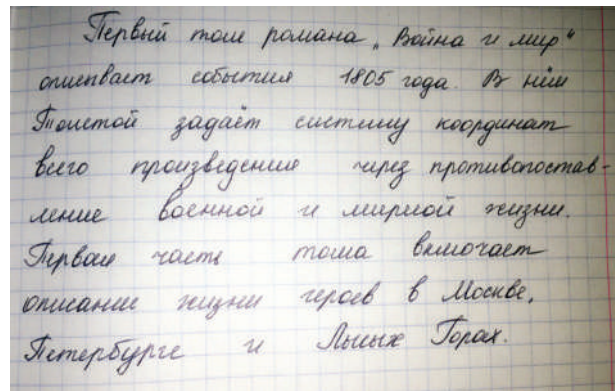 Первый том романа „Война и мир“
описывает события 1805 года. В нём
Толстой задаёт систему координат
всего произведения через противопостав-
ление военной и мирной жизни.
Первая часть тома включает
описание жизни героев в Москве,
Петербурге и Лысых Горах.